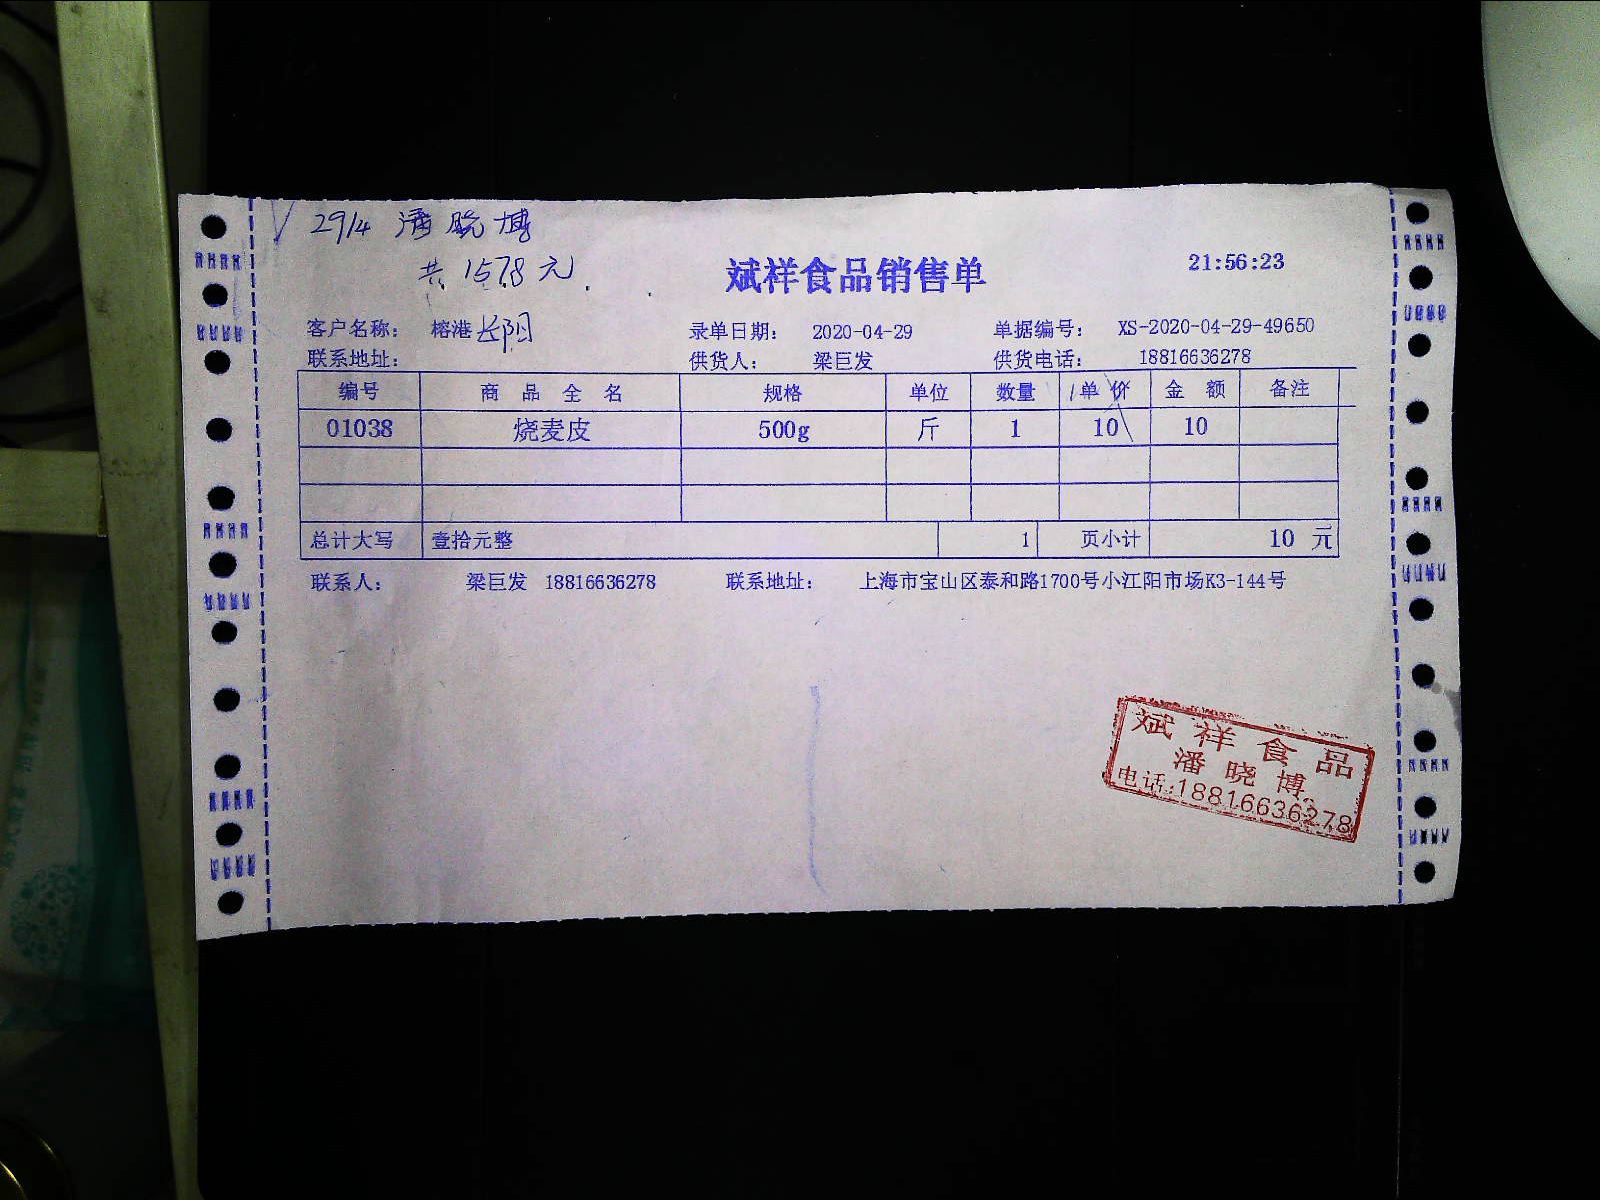 29/4 潘晓博
共 1578元
斌祥食品销售单 21:56:23
客户名称: 榕港 长阳 录单日期: 2020-04-29 单据编号: XS-2020-04-29-49650
联系地址: 供货人: 梁巨发 供货电话: 18816636278
编号 商品全名 规格 单位 数量 单价 金额 备注
01038 烧麦皮 500g 斤 1 10 10
总计大写 壹拾元整 1 页小计 10 元
联系人: 梁巨发 18816636278 联系地址: 上海市宝山区泰和路1700号小江阳市场K3-144号
斌祥食品
潘晓博
电话:18816636278